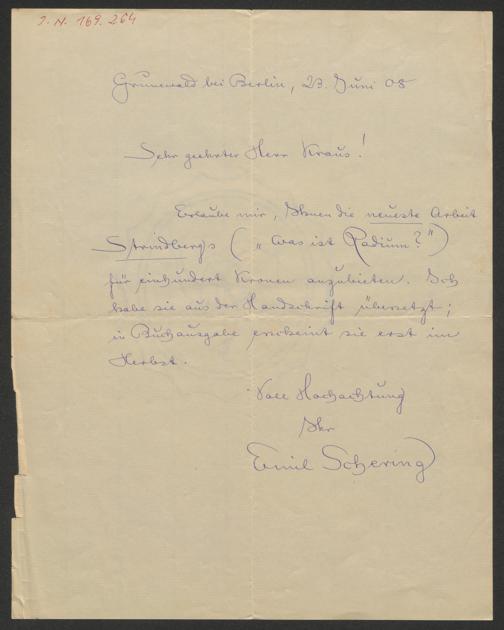 I. N. 169.264
Grunewald bei Berlin, 23. Juni 08
Sehr geehrter Herr Kraus!
Erlaube mir, Ihnen die neueste Arbeit
Strindbergs („Was ist Radium?")
für einhundert Kronen anzubieten. Ich
habe sie aus der Handschrift übersetzt;
in Buchausgabe erscheint sie erst im
Herbst.
Voll Hochachtung
Ihr
Emil Schering